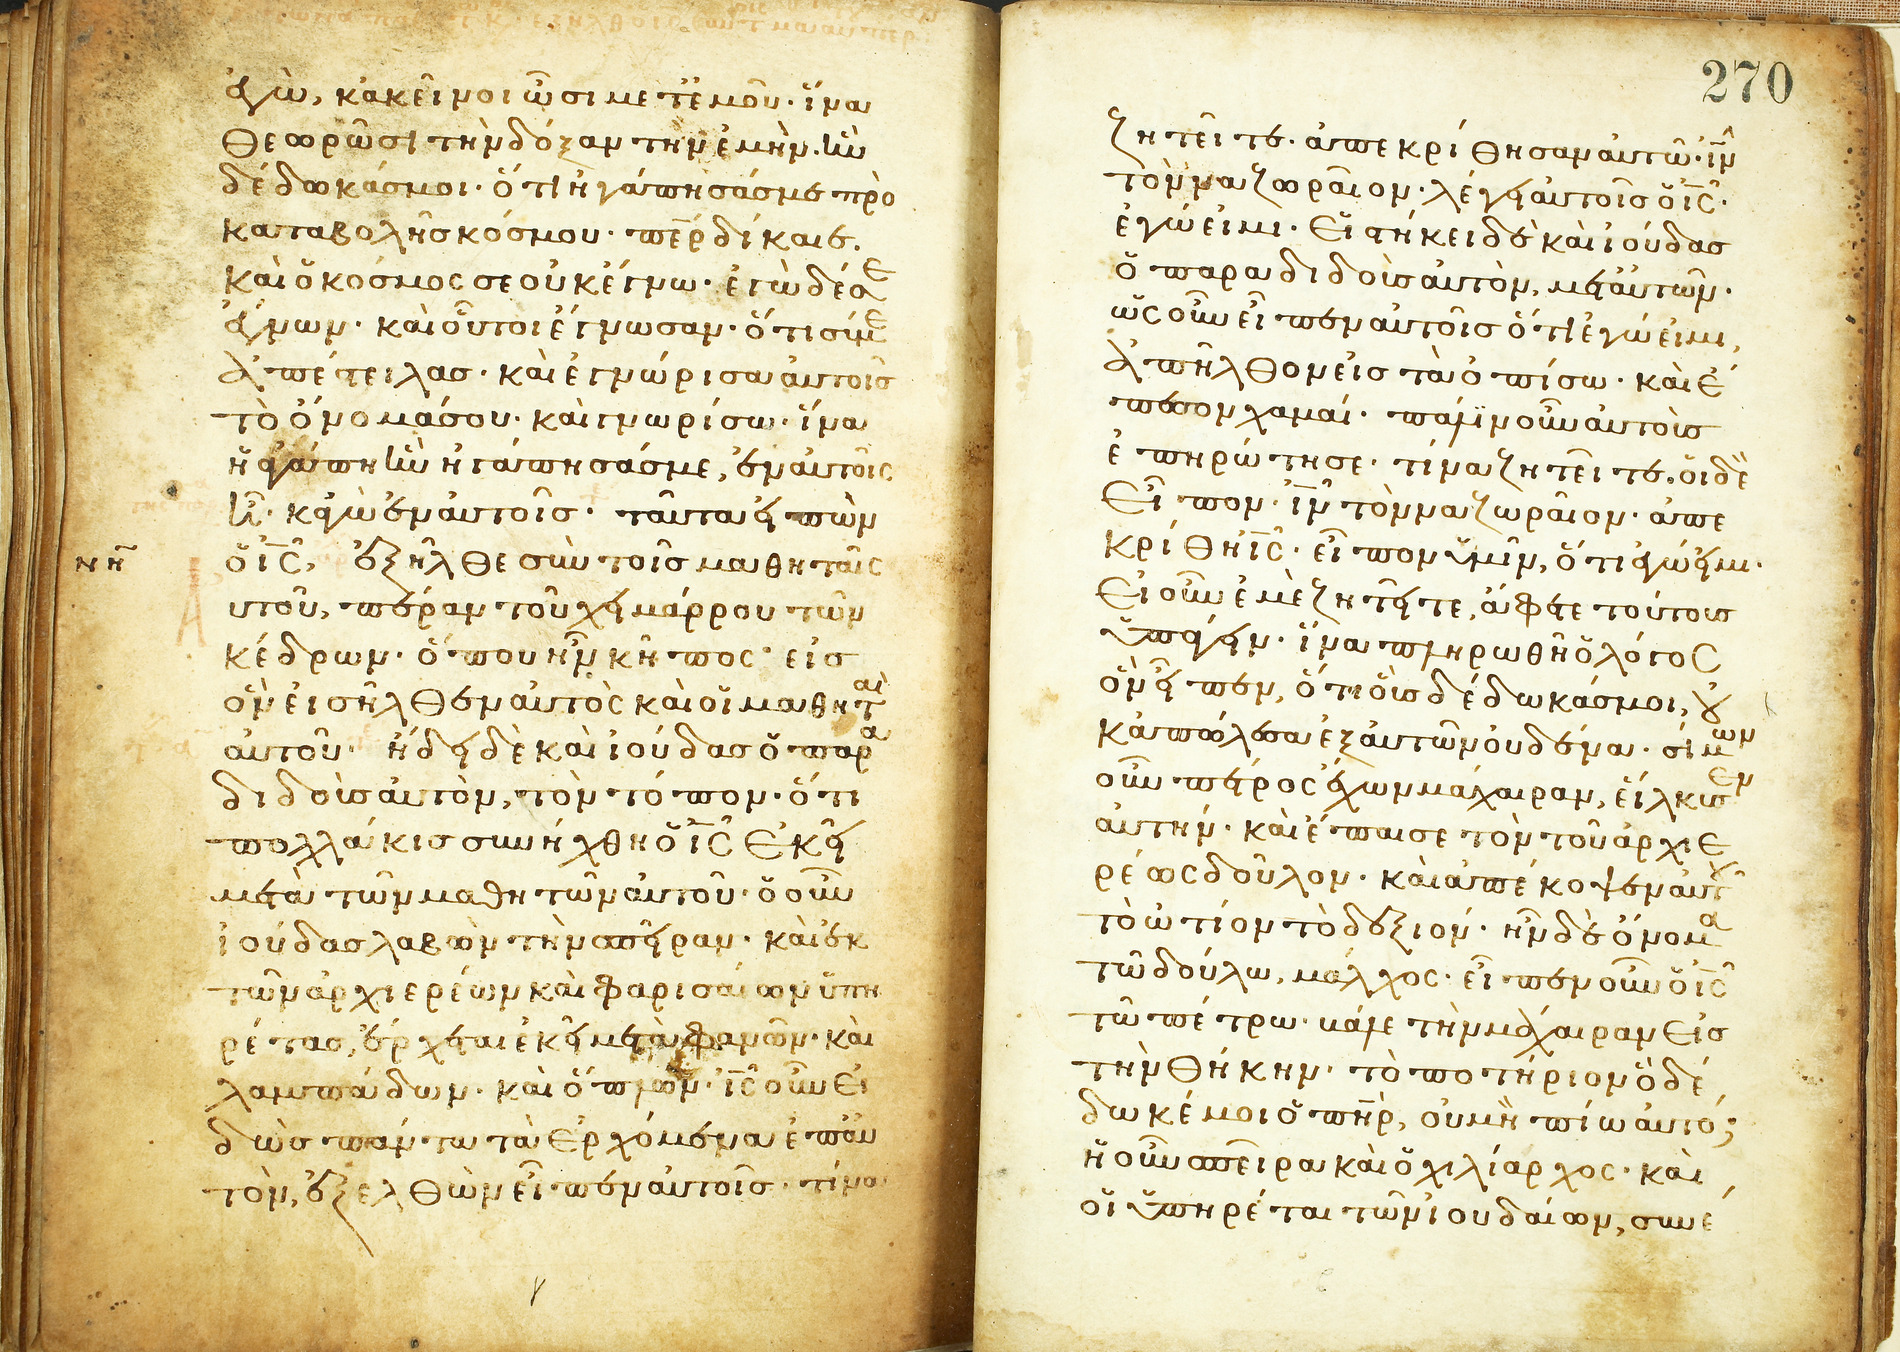 ἐγὼ, κἀκεῖνοι ὦσι μετ ἐμοῦ· ἵνα
θεωρῶσι τὴν δόξαν τὴν ἐμὴν. ἣν
δέδωκάσ μοι· ὅτι ἠγάπησάσ με πρὸ
καταβολῆσ κόσμου· πε̅ρ δίκαιε.
καὶ ὁ κόσμος σε οὐκ ἔγνω· ἐγὼ δέ σε
ἔγνων· καὶ οὗτοι ἔγνωσαν· ὅτι σύ με
ἀπέστειλασ· καὶ ἐγνώρισα αὐτοῖσ
τὸ ὄνομά σου· καὶ γνωρίσω· ἵνα
ἡ ἀγάπη ἣν ἠγάπησάσ με, ἐν αὐτοῖς
ἦ· κἀγὼ ἐν αὐτοῖσ· ταῦτα εἰπὼν
ὁ ι̅ς, ἐξῆλθε σὺν τοῖσ μαθηταῖς
νη
υτοῦ, πέραν τοῦ χειμάρρου τῶν
κέδρων· ὅπου ἦν κῆπος· εἰσ
ὃν εἰσῆλθεν αὐτὸς καὶ οἱ μαθηταὶ
αὐτοῦ· ἤδει δὲ καὶ ἰούδασ ὁ παρα
διδοὺσ αὐτὸν, τὸν τόπον· ὅτι
πολλάκισ συνήχθη ὁ ι̅ς ἐκεῖ
μετὰ τῶν μαθητῶν αὐτοῦ· ὁ οὖν
ἰούδασ λαβὼν τὴν σπεῖραν· καὶ ἐκ
τῶν ἀρχιερέων καὶ φαρισαίων ὑπη
ρέτασ, ἔρχεται ἐκεῖ μετὰ φανῶν· καὶ
λαμπάδων· καὶ ὅπλων· ι̅ς οὖν εἰ
δὼσ πάντα τὰ ἐρχόμενα ἐπ αὐ
τὸν, ἐξελθὼν εἶπεν αὐτοῖσ· τίνα
270
ζητεῖτε· ἀπεκρίθησαν αὐτῶ· ι̅ν
τὸν ναζωραῖον· λέγει αὐτοῖσ ὁ ι̅ς·
ἐγώ εἰμι· εἱστήκει δὲ καὶ ἰούδασ
ὁ παραδιδοὺσ αὐτὸν, μετ αὐτῶν·
ὡς οὖν εἶπεν αὐτοῖσ ὅτι ἐγώ εἰμι,
ἀπῆλθον εἰσ τὰ ὀπίσω· καὶ ἔ
πεσον χαμαί· πάλιν οὖν αὐτοὺσ
ἐπηρώτησε· τίνα ζητεῖτε. οἱ δὲ
εἶπον· ι̅ν τὸν ναζωραῖον· ἀπε
κρίθη ι̅ς· εἶπον ὑμῖν, ὅτι ἐγώ εἰμι·
εἰ οὖν ἐμὲ ζητεῖτε, ἄφετε τούτουσ
ὑπάγειν· ἵνα πληρωθῆ ὁ λόγος
ὃν εἶπεν, ὅτι οὓσ δέδωκάσ μοι, οὐ
κ ἀπώλεσα ἐξ αὐτῶν οὐδένα· σίμων
οὖν πέτρος ἔχων μάχαιραν, εἵλκυσεν
αὐτήν· καὶ ἔπαισε τὸν τοῦ ἀρχιε
ρέως δοῦλον· καὶ ἀπέκοψεν αὐτοῦ
τὸ ὠτίον τὸ δεξιόν· ἦν δὲ ὄνομα
τῶ δούλω, μάλχος· εἶπεν οὖν ὁ ι̅ς
τῶ πέτρω· βάλε τὴν μάχαιραν εἰσ
τὴν θήκην· τὸ ποτήριον ὃ δέ
δωκέ μοι ὁ πη̅ρ, οὐ μὴ πίω αὐτό;
ἡ οὖν σπεῖρα καὶ ὁ χιλίαρχος· καὶ
οἱ ὑπηρέται τῶν ἰουδαίων, συνέ